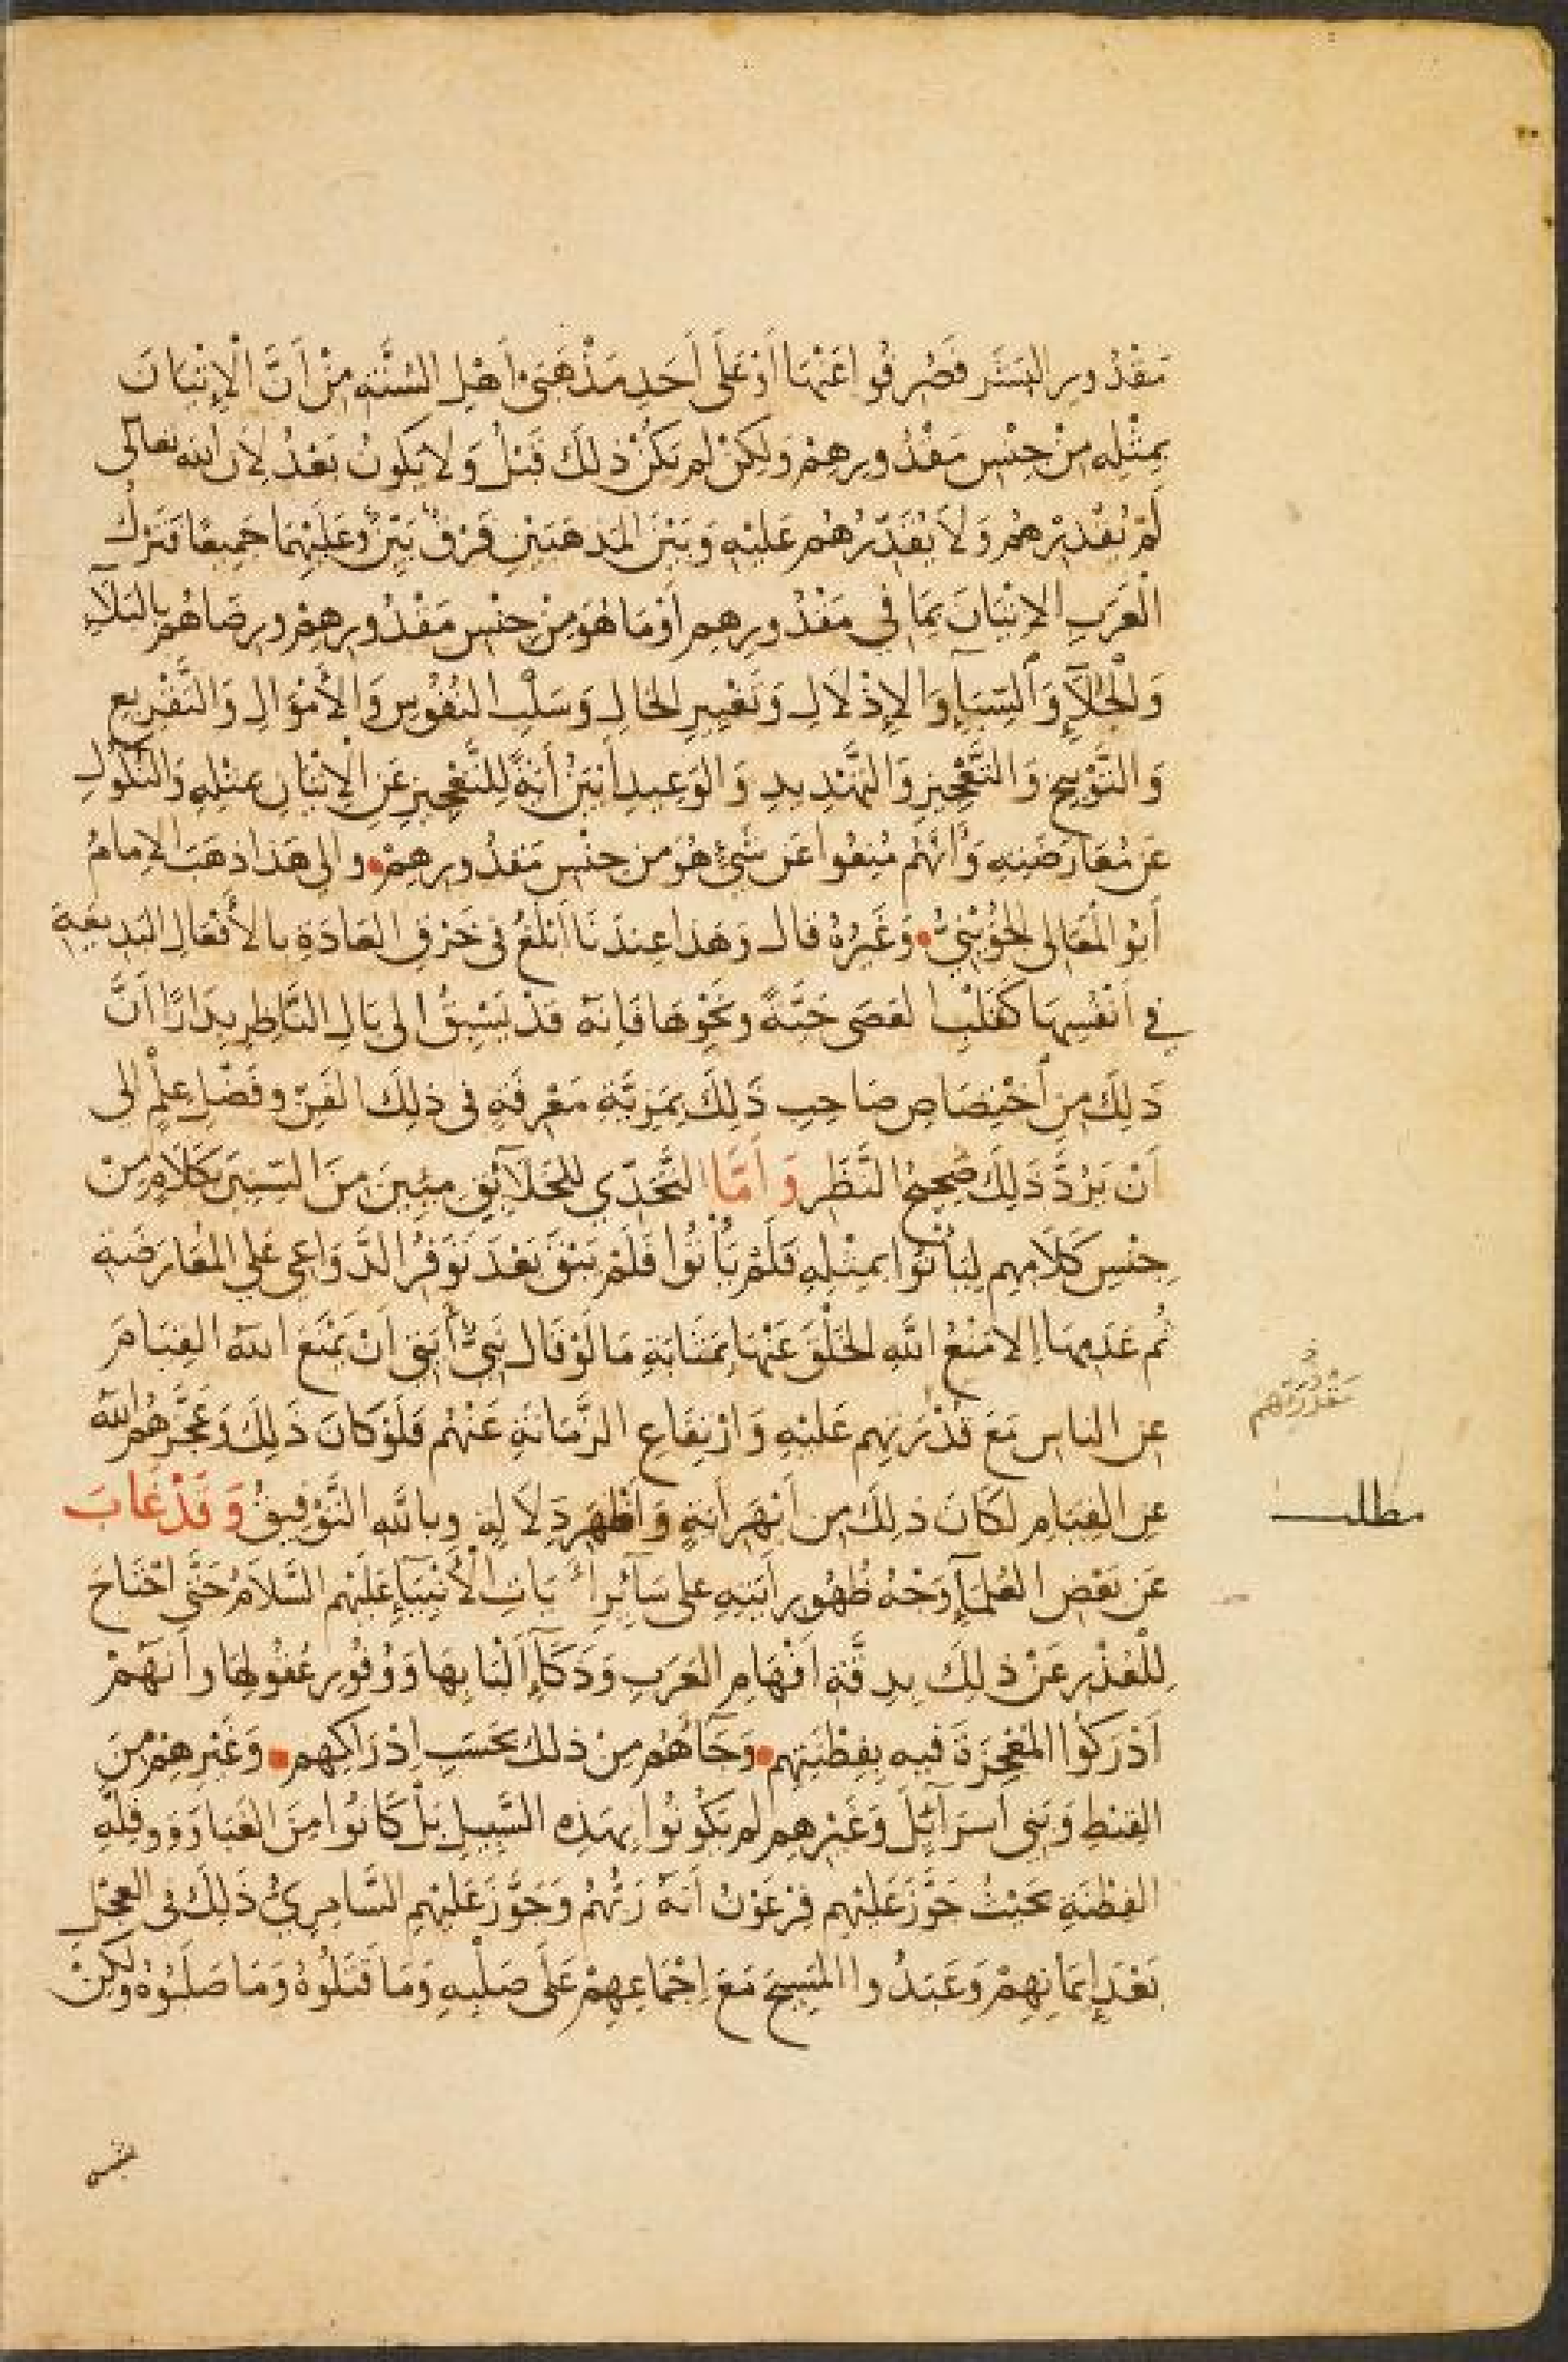 مَقْدُورِ البَشَرِ فَصُرِفُوا عَنْهَا أَوْ عَلَى أَحَدِ مَذْهَبَيْ أَهْلِ السُّنَّةِ مِنْ أَنَّ الْإِتْيَانَ
بِمِثْلِهِ مِنْ جِنْسِ مَقْدُورِهِمْ وَلكِنْ لم يَكُنْ ذلِكَ قَبْلُ وَلا يَكُونُ بَعْدُ لِأَنَّ الله تعالى
لَمْ يُقْدِرْهُمْ وَلَا يُقَدِّرُهُم عَلَيْهِ وَبَيْنَ المَذهَبَيْنِ فَرْقٌ بَيِّنٌ وَعَلَيْهِمَا جَمِيعًا فَتَرْكُ
الْعَرَبِ الإِتْيَانَ بِمَا في مَقْدُورِهِم أَوْ مَا هُوَ مِنْ جِنْسِ مَقْدُورِهِمْ ورِضَاهُمْ بِالبَلَآءِ
وَالْجَلَآءِ وَالسِّبَآءِ وَالإِذْلَالِ وَتَغْيِيرِ الحَالِ وَسَلْبِ النُّفُوسِ وَالْأَمْوَالِ وَالتَّقْرِيعِ
وَالتَّوْبِيخِ وَالتَّعْجِيزِ وَالتَّهْدِيدِ وَالوَعِيدِ أَبْيَنُ آيَةً لِلتَّعْجِيزِ عَنِ الْإِتْيَانِ بمثلِهِ وَالنُّكُولِ
عَنْ مُعَارَضَتِهِ وَأَنَّهُمْ مُنِعُوا عَن شَيْءٍ هُوَ من جِنْسِ مَقدُورِهِمْ • والى هَذا ذهَبَ الإمامُ
أَبُو المَعَالى الجُوَيْنِيُّ • وَغَيْرُهُ قال وَهَذا عِندَنَا أَبْلَغُ فى خَرْقِ العَادَةِ بالأَفْعَالِ البَدِيعَةِ
في أَنْفُسِهَا كَقَلْبِ العَصَى حَيَّةً ونَحْوِهَا فَإِنَّهُ قَدْ يَسْبِقُ الى بَالِ النَّاظِرِ بِدَارًا أَنَّ
ذَلِكَ مِن اخْتِصَاصِ صَاحِبِ ذَلِكَ بِمَزِيَّةِ مَعْرِفَةٍ فى ذلِكَ الفَنِّ وفَضْلِ عِلْمٍ الى
أَنْ يَرُدَّ ذَلِكَ صَحِيحُ النَّظَرِ وَأَمَّا التَّحَدِّي لِلْخَلَآئِقِ مِئِينَ مِنَ السِّنِينَ بكَلَامٍ مِنْ
جِنْسِ كَلَامِهِم لِيَأْتُوا بمِثْلِهِ فَلَمْ يَأْتُوا فَلَمْ يَبْقَ بَعْدَ تَوَفُّرِ الدَّوَاعِى عَلى المُعَارَضَةِ
ثُم عَدَمِهَا إلا مَنْعُ اللهِ الخَلْقَ عَنْهَا بِمَثَابَةِ مَا لَوْ قَالَ نَبِيٌّ آيَتِي أَنْ يَمْنَعَ اللهُ القِيَامَ
عن الناسِ مَعَ قُدْرَتِهِم عَلَيْهِ وَارْتِفَاعِ الزَّمَانَةِ عَنْهُم فَلَوْ كَانَ ذَلِكَ وَعَجَّزَهُمُ اللهُ
عَنِ القِيَامِ لَكَانَ ذلِكَ مِن أَبْهَرِ آيَةٍ وَأَظْهَرِ دَلَالَةٍ وباللهِ التَّوْفِيقُ وَقَدْ غَابَ
عَن بَعْضِ العُلَمَآءِ وَجْهُ ظُهُورِ آيَتِهِ على سَآئِرِ آيَاتِ الأَنْبِيَآءِ عَلَيْهِم السَّلَامُ حَتَّى احْتَاجَ
لِلْعُذْرِ عَنْ ذلِكَ بِدِقَّةِ أَفْهَامِ العَرَبِ وَذَكَآءِ أَلْبَابِهَا وَوُفُورِ عُقُولِهَا وأَنَّهُمْ
أَدْرَكُوا المُعْجِزَةَ فيهِ بِفِطْنَتِهِم • وَجَآءَهُم مِنْ ذلك بحَسَبِ إِدْرَاكِهِم • وَغَيْرِهِمْ مِنَ
القِبْطِ وَبَنِي اسْرَآئِلَ وَغَيْرِهِم لم يَكُونُوا بِهَذِهِ السَّبِيلِ بَلْ كَانُوا مِنَ الغَبَاوَةِ وقِلَّةِ
الفِطْنَةِ بحَيْثُ جَوَّزَ عَلَيْهِم فِرْعَوْنُ أَنَّهُ رَبُّهُمْ وَجَوَّزَ عَلَيْهِمِ السَّامِرِيُّ ذَلِكَ فِى العِجْلِ
بَعْدَ إِيمَانِهِمْ وَعَبَدُوا المَسِيحَ مَعَ إِجْمَاعِهِمْ عَلَى صَلْبِهِ وَمَا قَتَلُوهُ وَمَا صَلَبُوهُ وَلَكِنْ
مَقْدُرَتِهِم
مطلب
شبه